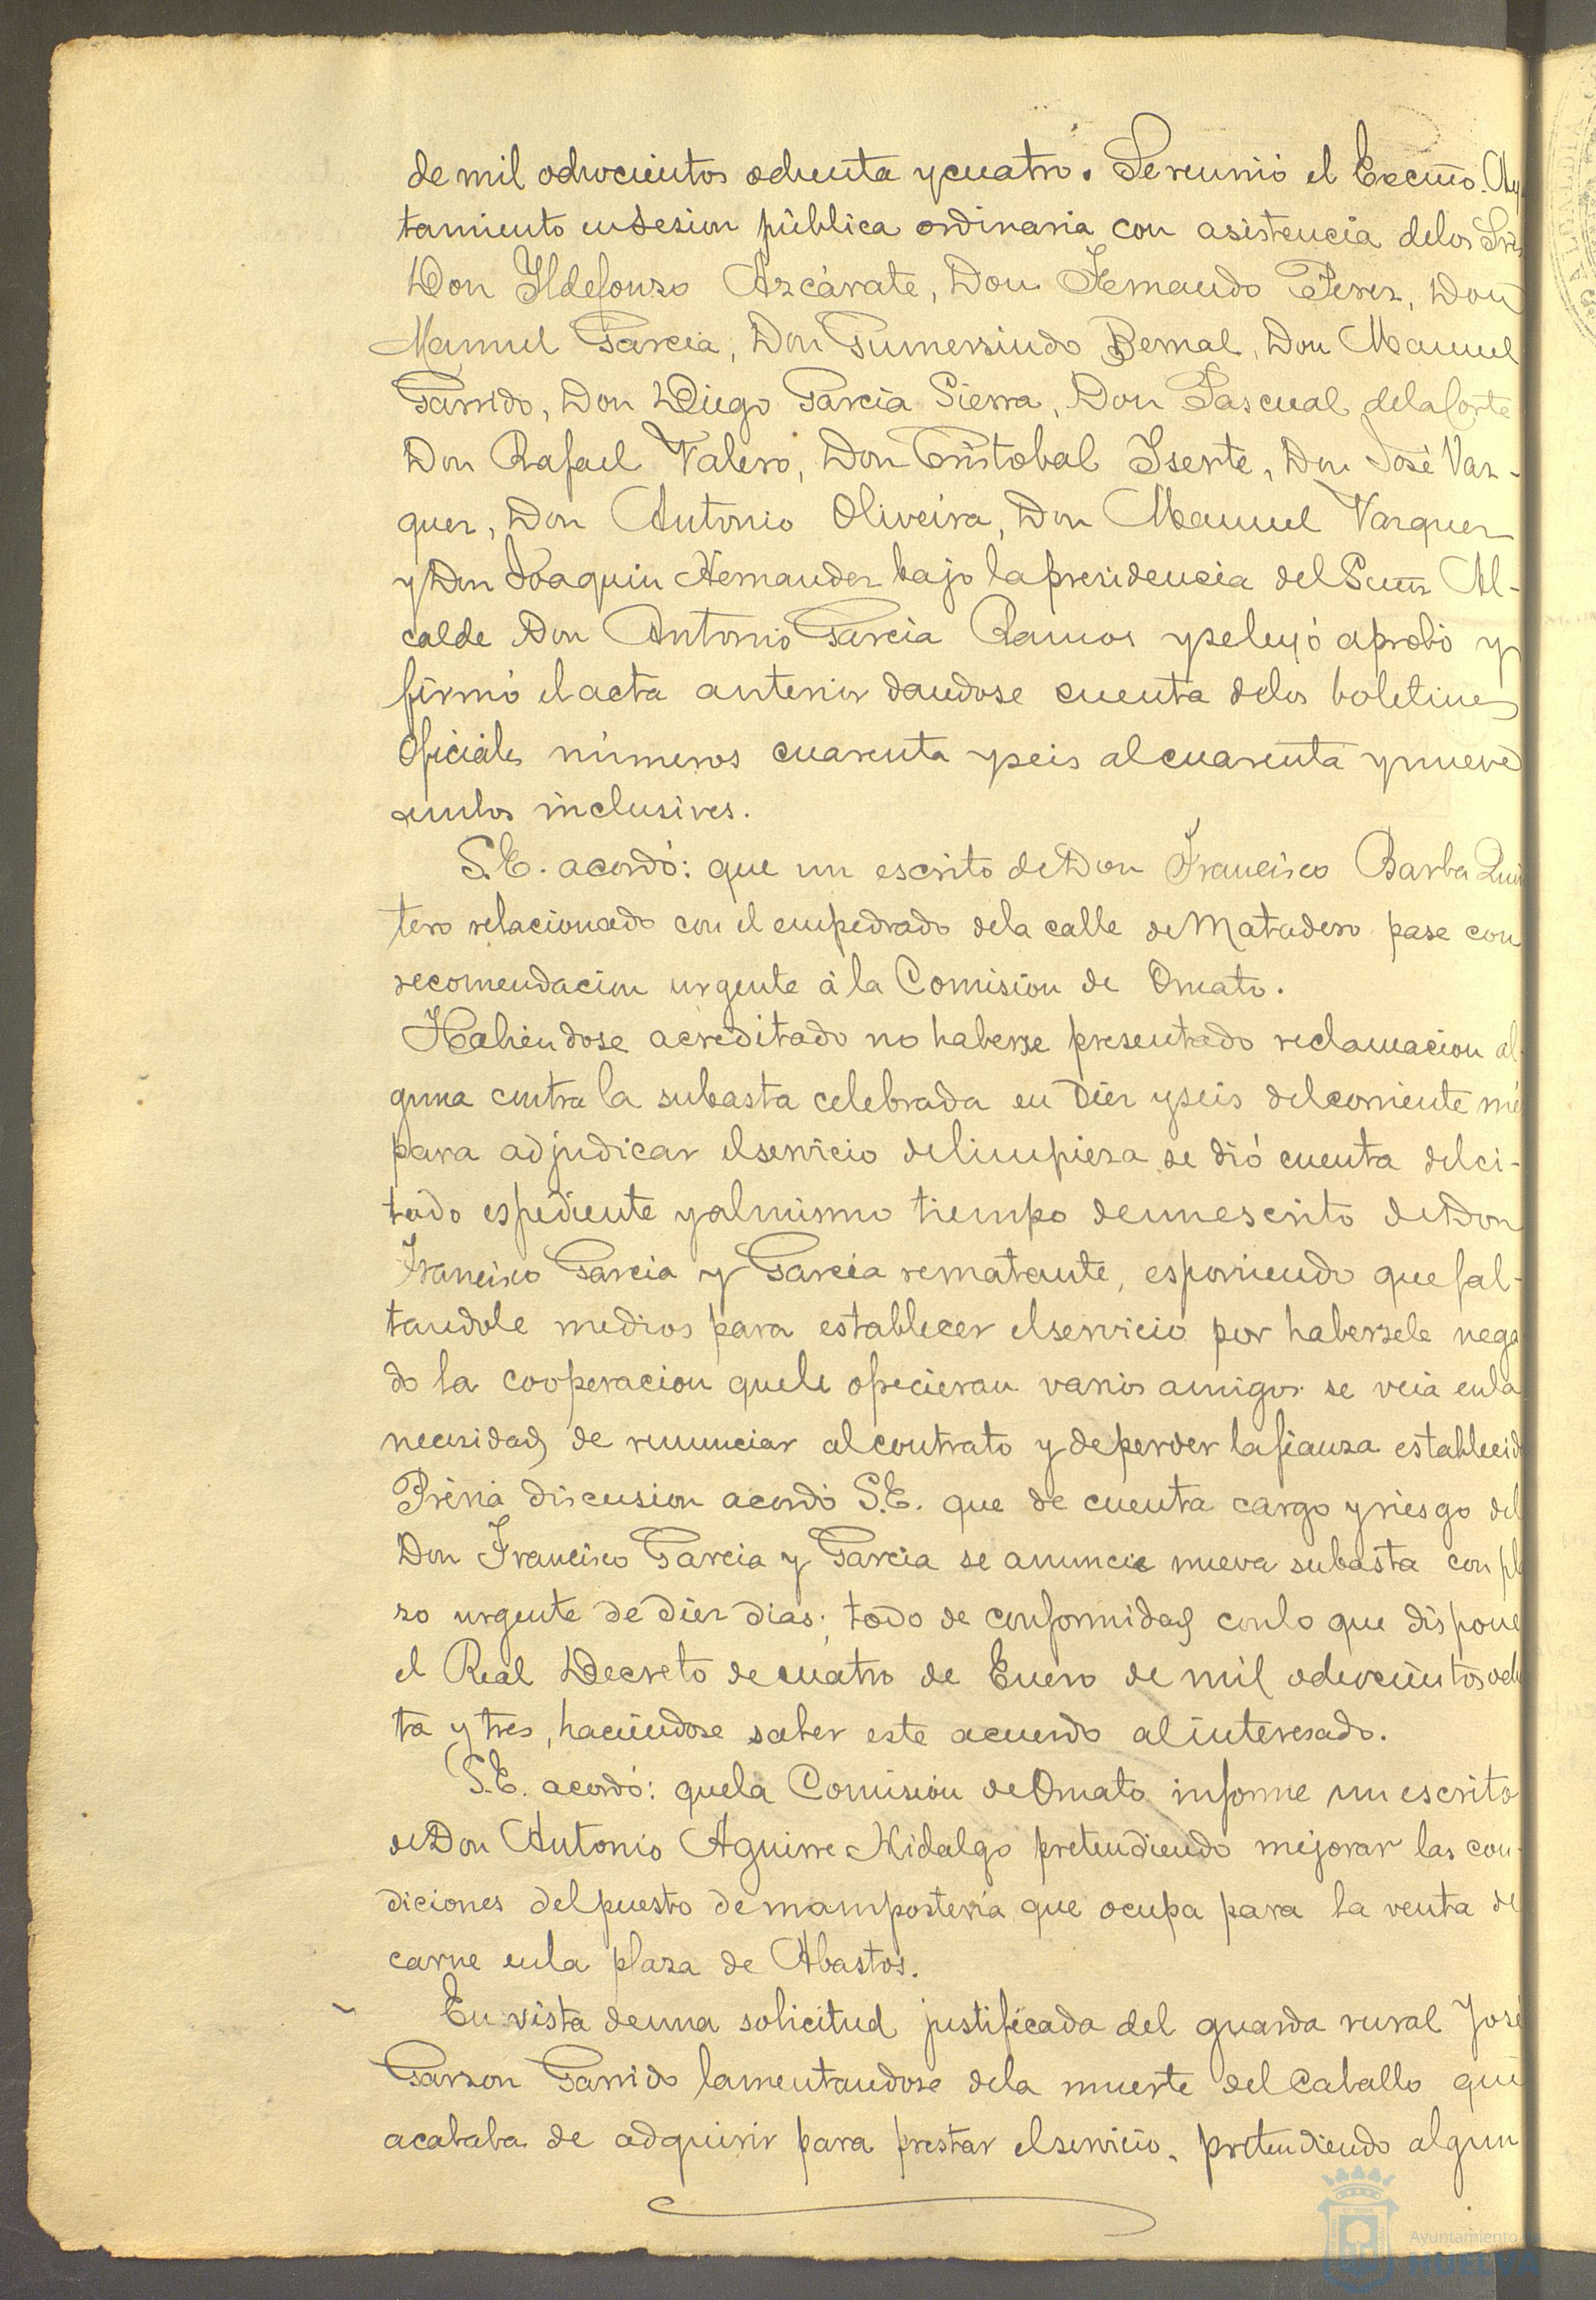 de mil ochocientos ochenta y cuatro. Se reunió el Excmo. Ayu
tamiento en sesion pública ordinaria con asistencia de los Srs
Don Yldefonso Azcárate, Don Fernando Perez, Don
Manuel Garcia, Don Gumersindo Bernal, Don Manuel
Garrido, Don Diego Garcia Sierra, Don Pascual de la Corte
Don Rafael Valero, Don Cristobal Ysente, Don José Vaz-
quez, Don Antonio Oliveira, Don Manuel Vazquez
y Don Joaquin Hernandez bajo la presidencia del Señor Al-
calde Don Antonio Garcia Ramos y se leyó aprobó y
firmó el acta anterior dandose cuenta de los boletines
Oficiales números cuarenta y seis al cuarenta y nueve
ambos inclusives.
S.E. acordó: que un escrito de Don Francisco Barba Quin
tero relacionado con el empedrado de la calle de Matadero pase con
recomendacion urgente á la Comision de Ornato.
Habiendose acreditado no haberse presentado reclamacion al-
guna contra la subasta celebrada en diez y seis del corriente me
para adjudicar el servicio de limpieza se dió cuenta del ci-
tado espediente y al mismo tiempo de un escrito de Don
Francisco Garcia y Garcia rematante, esponiendo que fal-
tandole medios para establecer el servicio por habersele nega
do la cooperacion que le ofrecieran varios amigos se veia en la
necesidad de renunciar al contrato y de perder la fianza establecid
Prévia discusion acordó S.E. que de cuenta cargo y riesgo del
Don Francisco Garcia y Garcia se anuncie nueva subasta con pla
zo urgente de diez dias; todo de conformidad con lo que dispone
el Real Decreto de cuatro de Enero de mil ochocientos och
ta y tres, haciendose saber este acuerdo al interesado.
S.E. acordó: que la Comision de Ornato informe un escrito
de Don Antonio Aguirre Hidalgo pretendiendo mejorar las con-
diciones del puesto de mamposteria que ocupa para la venta de
carne en la plaza de Abastos.
En vista de una solicitud justificada del guarda rural José
Garzon Garrido lamentandose de la muerte del caballo que
acababa de adquirir para prestar el servicio, pretendiendo algun
Ayuntamiento de
HUELVA